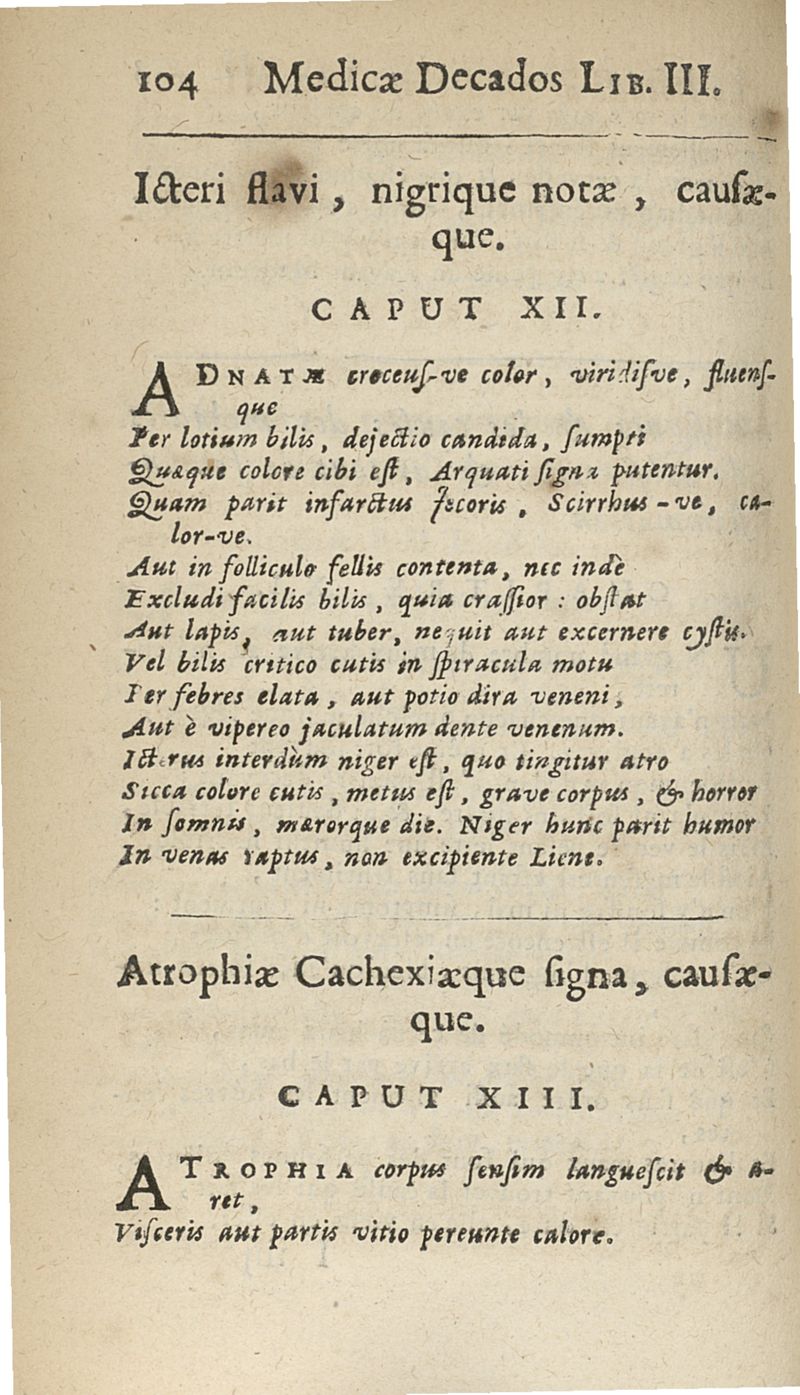 104 Medicæ Decados LIB. III.
Icteri flavi, nigrique notæ, cauſæ-
que.
CAPUT XII.
ADNATÆ croceuſ-ve color, viridiſve, fluenſ-
que
Per lotium bilis, dejectio candida, ſumpti
Quæque colore cibi eſt, Arquati ſigna putentur.
Quam parit infarctus Jecoris, Scirrhus-ve, ca-
lor-ve.
Aut in folliculo fellis contenta, nec indè
Excludi facilis bilis, quia craſſior: obſtat
Aut lapis, aut tuber, nequit aut excernere cyſtis.
Vel bilis critico cutis in ſpiracula motu
Per febres elata, aut potio dira veneni,
Aut è vipereo jaculatum dente venenum.
Icterus interdùm niger eſt, quo tingitur atro
Sicca colore cutis, metus eſt, grave corpus, & horror
In ſomnis, mærorque die. Niger hunc parit humor
In venas raptus, non excipiente Liene.
Atrophiæ Cachexiæque ſigna, cauſæ-
que.
CAPUT XIII.
ATROPHIA corpus ſenſim langueſcit & a-
ret,
Viſceris aut partis vitio pereunte calore.